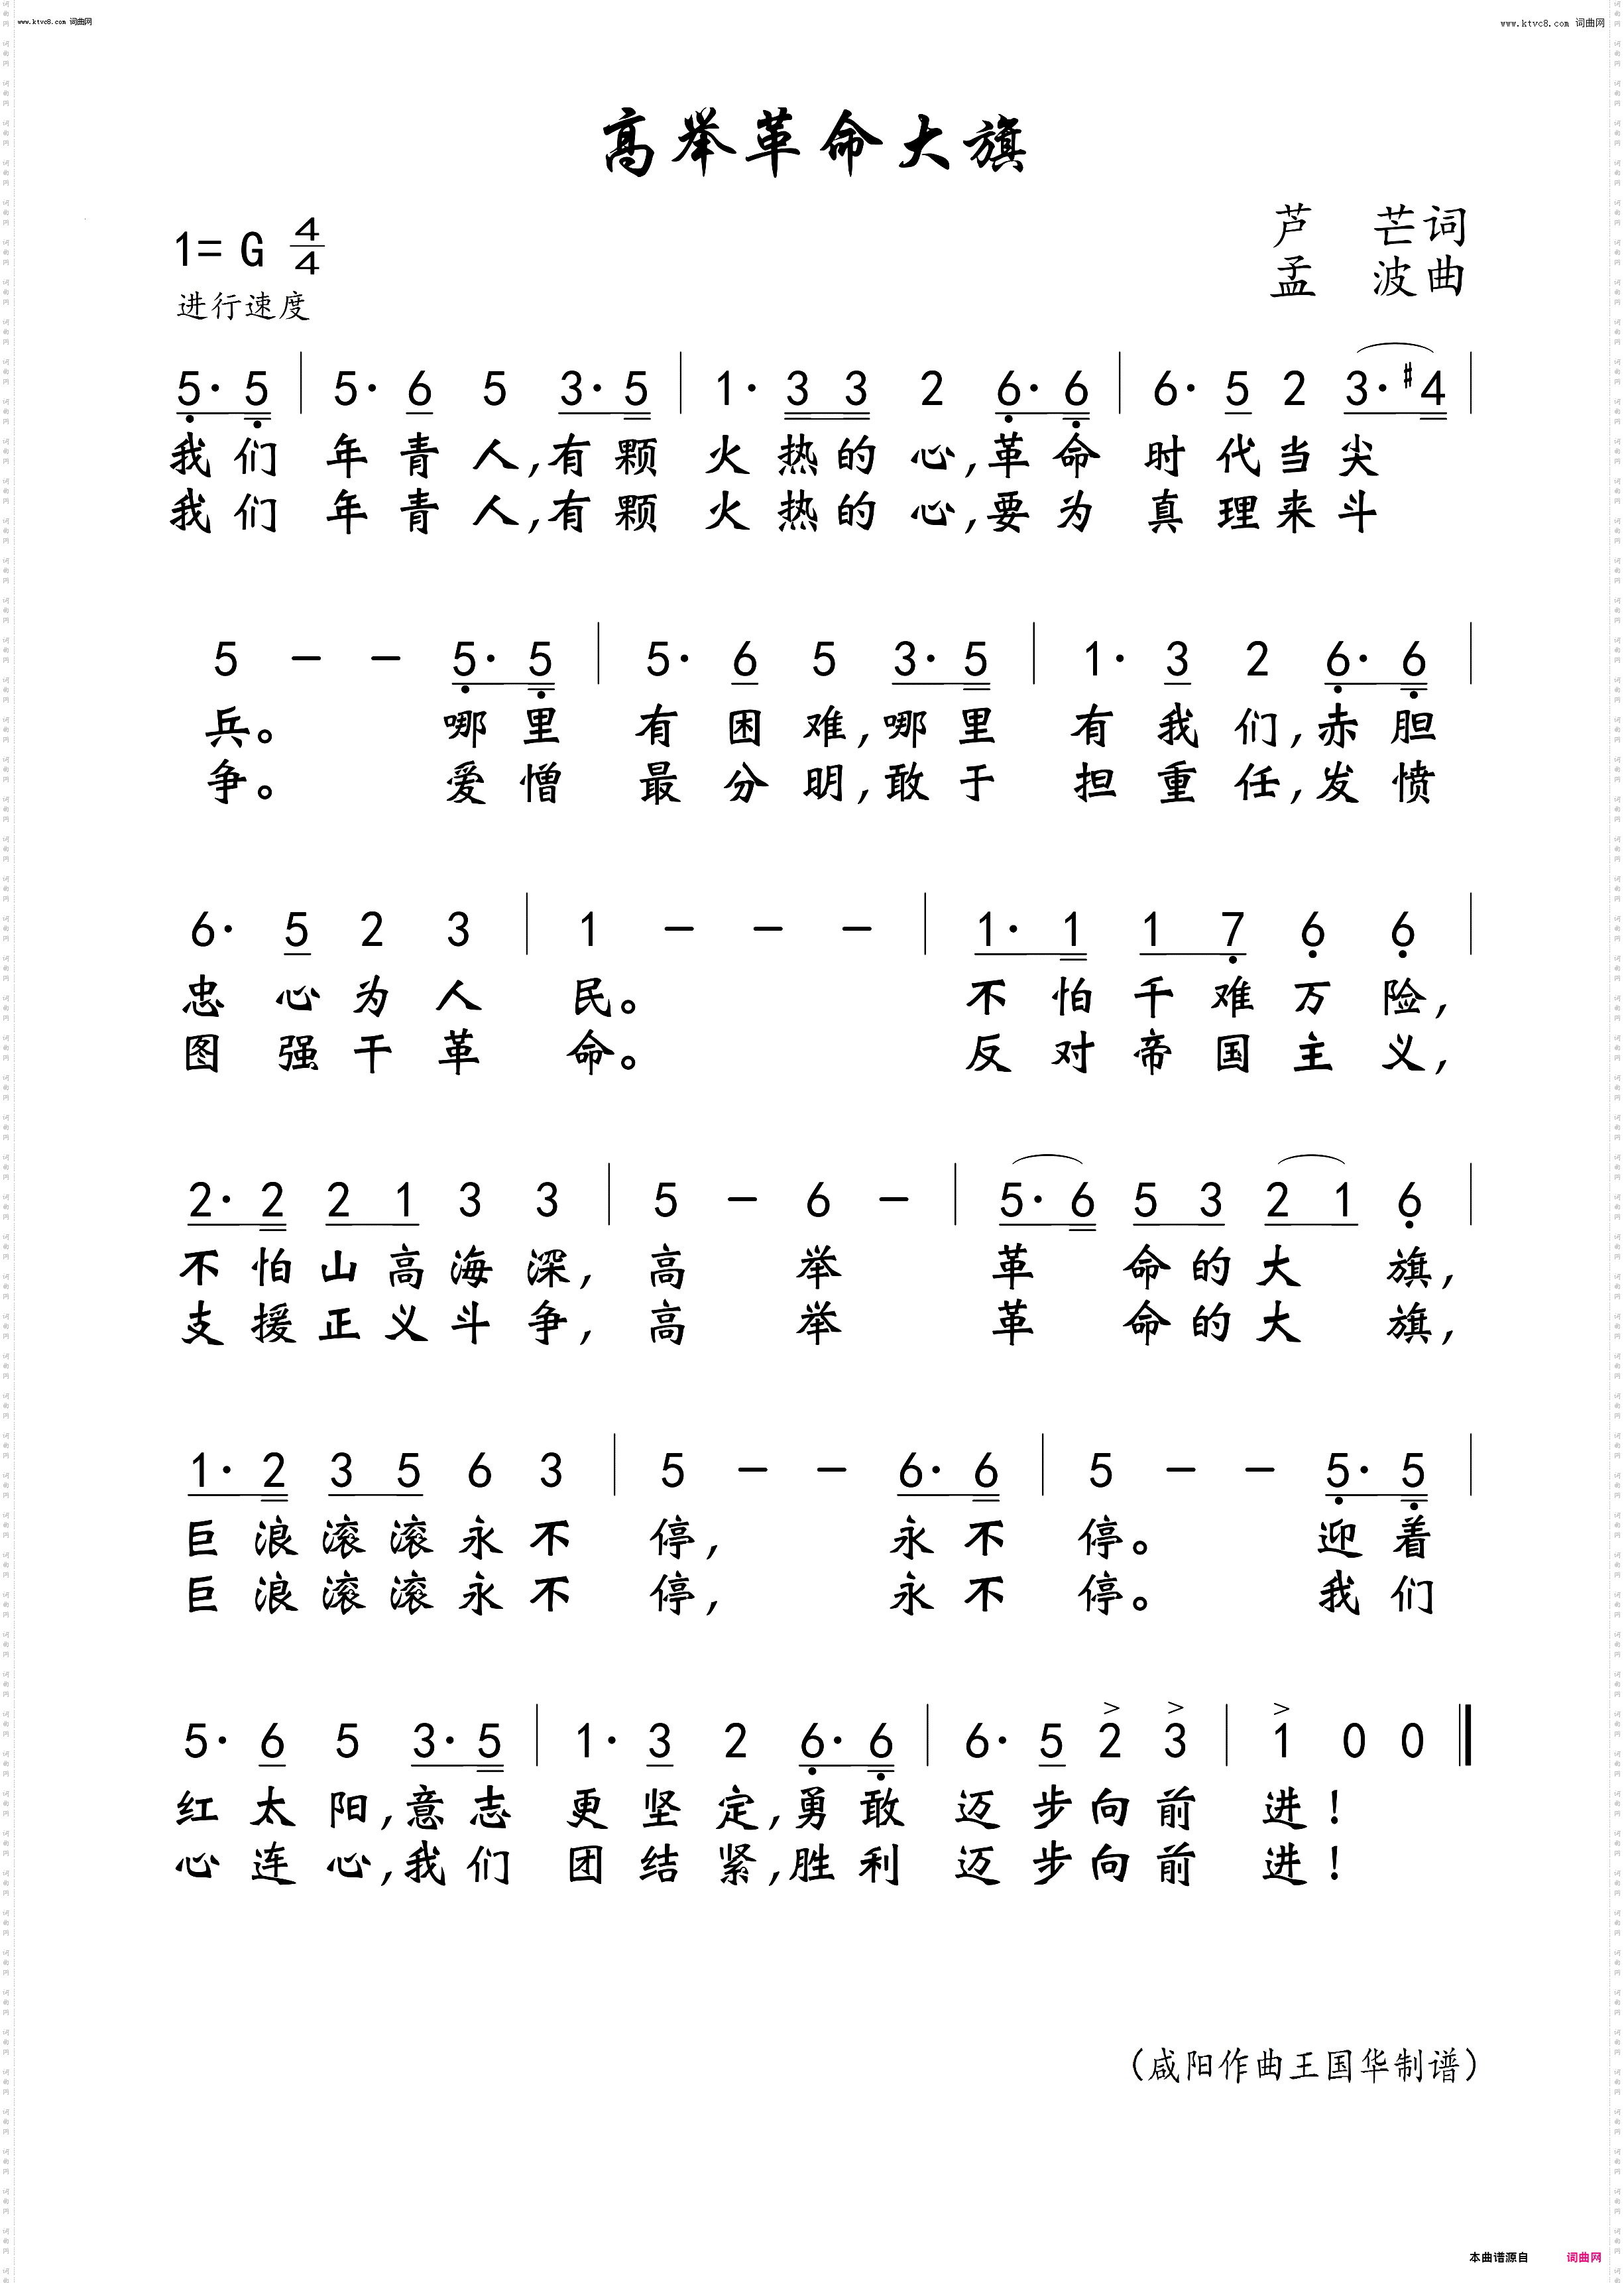 www.ktvc8.com 词曲网
www.ktvc8.com 词曲网
高举革命大旗
1= G 4/4
芦 芒词
孟 波曲
进行速度
5· 5 | 5· 6 5 3· 5 | 1· 3 3 2 6· 6 | 6· 5 2 3· #4 |
我们 年青人,有颗 火热的心,革命 时代当尖
我们 年青人,有颗 火热的心,要为 真理来斗
5 — — 5· 5 | 5· 6 5 3· 5 | 1· 3 2 6· 6 |
兵。 哪里 有困难,哪里 有我们,赤胆
争。 爱憎 最分明,敢于 担重任,发愤
6· 5 2 3 | 1 — — — | 1· 1 1 7 6 6 |
忠心为人 民。 不怕千难万险,
图强干革 命。 反对帝国主义,
2· 2 2 1 3 3 | 5 — 6 — | 5· 6 5 3 2 1 6 |
不怕山高海深, 高 举 革 命的大 旗,
支援正义斗争, 高 举 革 命的大 旗,
1· 2 3 5 6 3 | 5 — — 6· 6 | 5 — — 5· 5 |
巨浪滚滚永不 停, 永不 停。 迎着
巨浪滚滚永不 停, 永不 停。 我们
5· 6 5 3· 5 | 1· 3 2 6· 6 | 6· 5 > 2 > 3 | > 1 0 0 ‖
红太阳,意志 更坚定,勇敢 迈步向前 进!
心连心,我们 团结紧,胜利 迈步向前 进!
(咸阳作曲王国华制谱)
本曲谱源自 词曲网